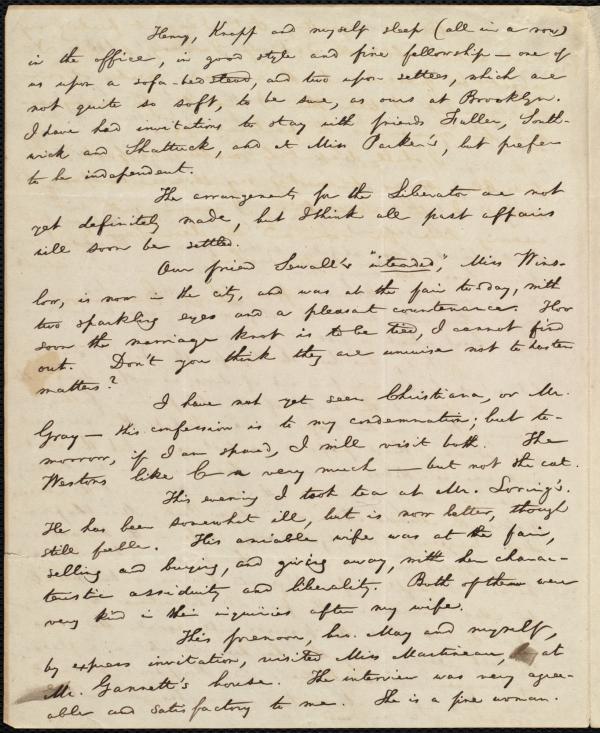 Henry, Knapp and myself sleep (all in a row)
in the office, in good style and fine fellowship — one of
us upon a sofa-bedstead, and two upon settees, which are
not quite so soft, to be sure, as ours at Brooklyn.
I have had invitations to stay with friends Fuller, South-
wick and Shattuck, and at Miss Parker's, but prefer
to be independent.
The arrangements for the Liberator are not
yet definitely made, but I think all past affairs
will soon be settled.
Our friend Sewall's "intended," Miss Wins-
low, is now in the city, and was at the fair to-day, with
two sparkling eyes and a pleasant countenance. How
soon the marriage knot is to be tied, I cannot find
out. Don't you think they are unwise not to hasten
matters?
I have not yet seen Christiana, or Mr.
Gray — this confession is to my condemnation; but to-
morrow, if I am spared, I will visit both. The
Westons like C very much — but not the cat.
This evening I took tea at Mr. Loring's.
He has been somewhat ill, but is now better, though
still feeble. His amiable wife was at the fair,
selling and buying, and giving away, with her charac-
teristic assiduity and liberality. Both of them were
very kind in their inquiries after my wife.
This forenoon, bro. May and myself,
by express invitation, visited Miss Martineau, at
Mr. Gannett's house. The interview was very agree-
able and satisfactory to me. She is a fine woman.